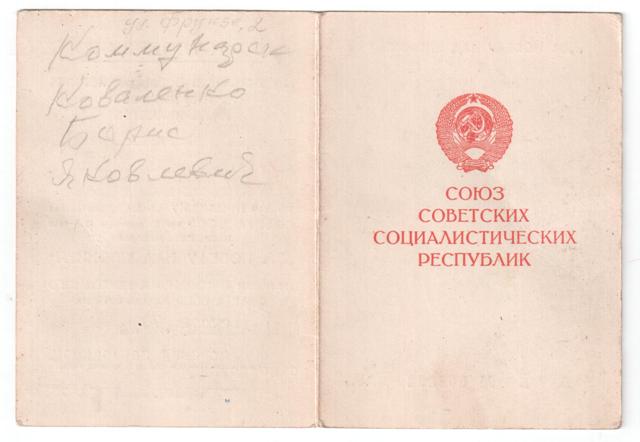 ул. Фрунзе, 2
Коммунарск
Коваленко
Борис
Яковлевич
СОЮЗ
СОВЕТСКИХ
СОЦИАЛИСТИЧЕСКИХ
РЕСПУБЛИК